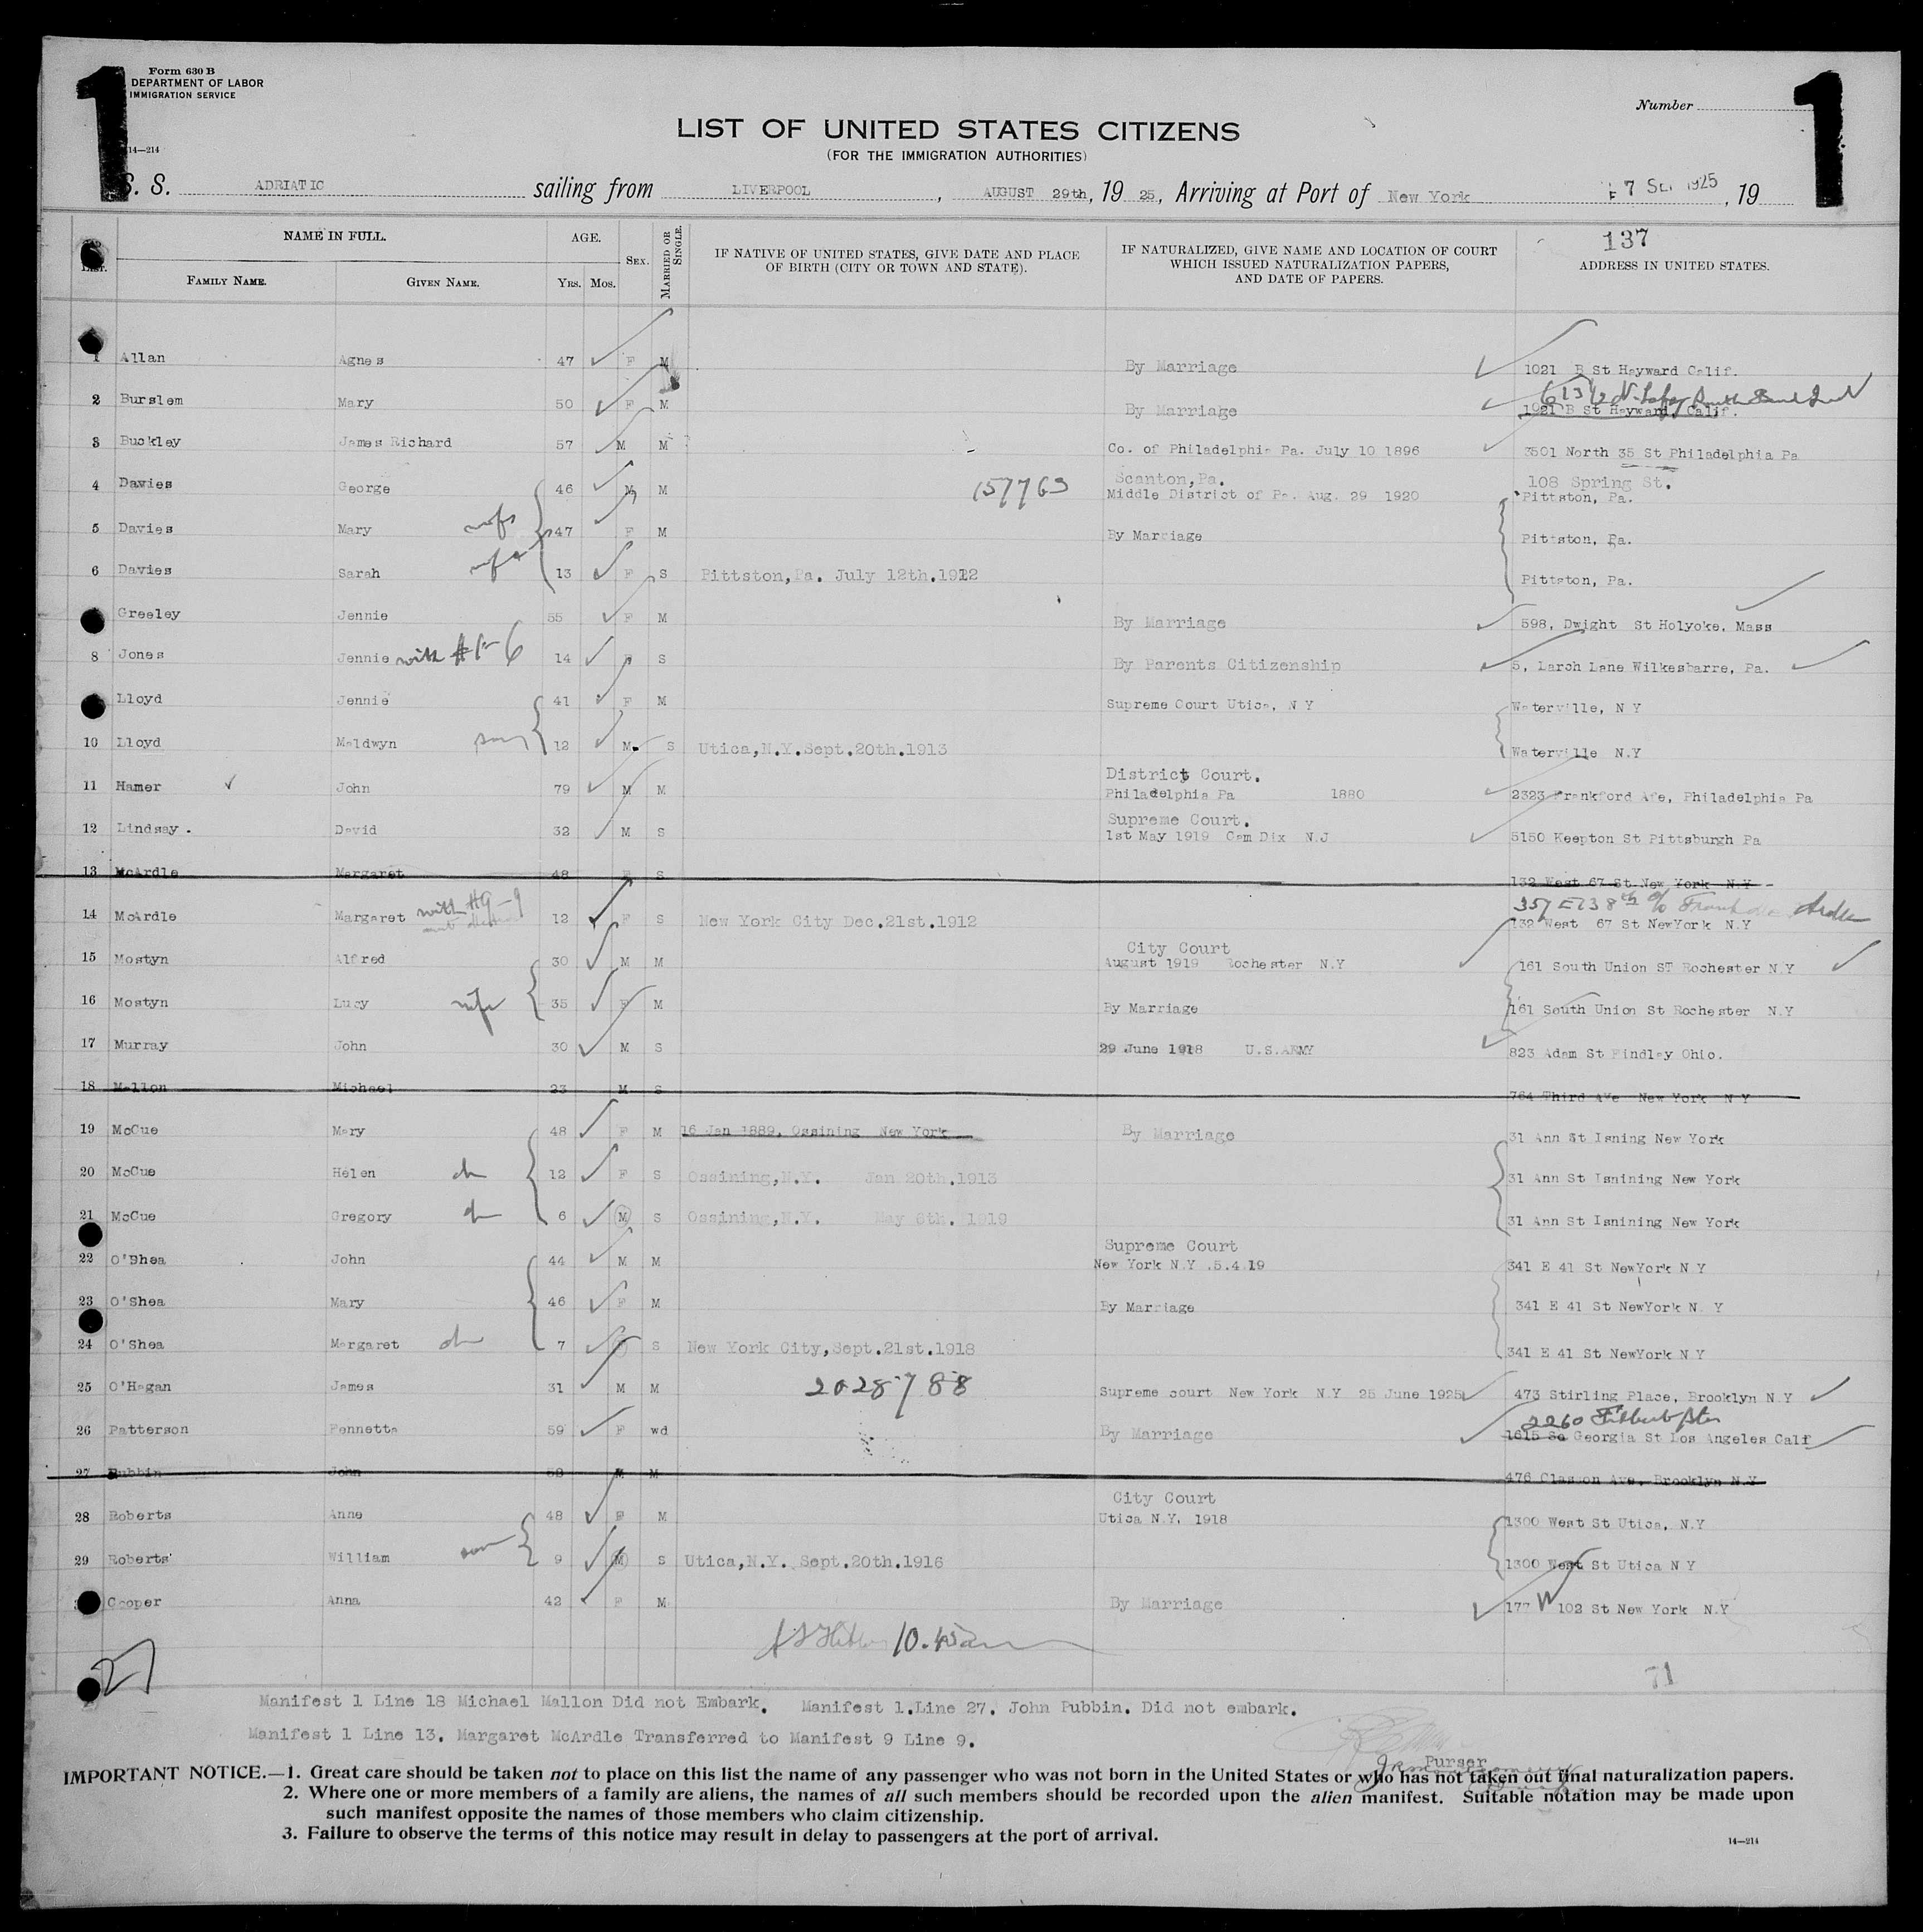 1 1
Form 630 B
DEPARTMENT OF LABOR
IMMIGRATION SERVICE
Number
14—214
LIST OF UNITED STATES CITIZENS
(FOR THE IMMIGRATION AUTHORITIES)
S. S. ADRIATIC sailing from LIVERPOOL, AUGUST 29th, 19 25, Arriving at Port of New York 7 SEP 1925, 19
137
NAME IN FULL. AGE. SEX. MARRIED OR SINGLE. IF NATIVE OF UNITED STATES, GIVE DATE AND PLACE OF BIRTH (CITY OR TOWN AND STATE). IF NATURALIZED, GIVE NAME AND LOCATION OF COURT WHICH ISSUED NATURALIZATION PAPERS, AND DATE OF PAPERS. ADDRESS IN UNITED STATES.
FAMILY NAME. GIVEN NAME. YRS. MOS.
1 Allan Agnes 47 F M By Marriage 1021 B St Hayward Calif.
2 Burslem Mary 50 F M By Marriage 1021 B St Hayward, Calif.
3 Buckley James Richard 57 M M Co. of Philadelphia Pa. July 10 1896 3501 North 35 St Philadelphia Pa
4 Davies George 46 M M 157763 Scanton, Pa. Middle District of Pa. Aug. 29 1920 108 Spring St. Pittston, Pa.
5 Davies Mary wife 47 F M By Marriage Pittston, Pa.
6 Davies Sarah 13 F S Pittston, Pa. July 12th. 1912 Pittston, Pa.
Greeley Jennie 55 F M By Marriage 598, Dwight St Holyoke, Mass
8 Jones Jennie with 14 S By Parents Citizenship 5, Larch Lane Wilkesbarre, Pa.
Lloyd Jennie 41 F M Supreme Court Utica, N Y Waterville, N Y
10 Lloyd Maldwyn son 12 M S Utica, N.Y. Sept. 20th. 1913 Waterville N.Y
11 Hamer John 79 M M District Court. Philadelphia Pa 1880 2323 Frankford Ave, Philadelphia Pa
12 Lindsay. David 32 M S Supreme Court. 1st May 1919 Cam Dix N.J 5150 Keepton St Pittsburgh Pa
13 McArdle Margaret 48 F S 132 West 67 St New York N Y
14 McArdle Margaret with #9-9 12 F S New York City Dec. 21st. 1912 357 E 138th c/o Frank McArdle 132 West 67 St NewYork N.Y
15 Mostyn Alfred 30 M M City Court August 1919 Rochester N.Y 161 South Union ST Rochester N.Y
16 Mostyn Lucy wife 35 F M By Marriage 161 South Union St Rochester N.Y
17 Murray John 30 M S 29 June 1918 U.S.ARMY 823 Adam St Findley Ohio.
18 Mallon Michael 23 M S 764 Third AVe New York N Y
19 McCue Mary 48 F M 16 Jan 1889, Ossining New York By Marriage 31 Ann St Isning New York
20 McCue Helen ch 12 F S Ossining, N.Y. Jan 20th. 1913 31 Ann St Isnining New York
21 McCue Gregory ch 6 M S Ossining, N.Y. May 6th. 1919 31 Ann St Isnining New York
22 O'Shea John 44 M M Supreme Court New York N.Y .5.4.19 341 E 41 St NewYork N Y
23 O'Shea Mary 46 F M By Marriage 341 E 41 St NewYork N. Y
24 O'Shea Margaret ch 7 S New York City, Sept. 21st. 1918 341 E 41 St NewYork N Y
25 O'Hagan James 31 M M 2028788 Supreme court New York N Y 25 June 1925 473 Stirling Place, Brooklyn N.Y
26 Patterson Pennetta 59 F wd By Marriage 2260 1615 So Georgia St Los Angeles Calif
27 Pubbin John 58 M M 476 Classon Ave, Brooklyn N.Y
28 Roberts Anne 48 F M City Court Utica N.Y. 1918 1300 West St Utica, N.Y
29 Roberts William son 9 M S Utica, N.Y. Sept. 20th. 1916 1300 West St Utica N Y
Cooper Anna 42 F M By Marriage 177 W 102 St New York N.Y
10.45am
27
71
Manifest 1 Line 18 Michael Mallon Did not Embark. Manifest 1.Line 27. John Pubbin. Did not embark.
Manifest 1 Line 13. Margaret McArdle Transferred to Manifest 9 Line 9.
Purser
IMPORTANT NOTICE.—1. Great care should be taken not to place on this list the name of any passenger who was not born in the United States or who has not taken out final naturalization papers.
2. Where one or more members of a family are aliens, the names of all such members should be recorded upon the alien manifest. Suitable notation may be made upon
such manifest opposite the names of those members who claim citizenship.
3. Failure to observe the terms of this notice may result in delay to passengers at the port of arrival.
14—214